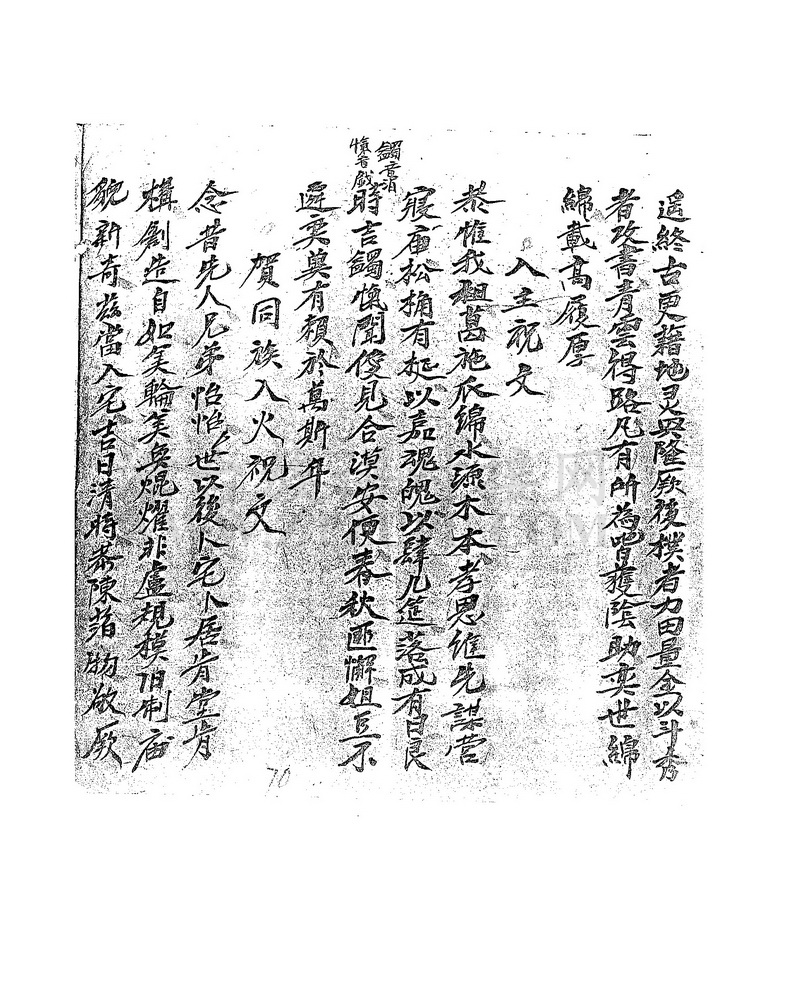 遥終古更藉地灵興隆厥後樸者力田量金以斗秀
者攻書青雲得路凡有所為皆獲陰助奕世綿
綿載高履厚
入主祝文
恭惟我祖葛施瓜綿水源木本孝思維先謀营
寝庙松桷有梴以嘉魂魄以肆几筵落成有日良
時吉蠲愾聞僾見合漠安便春秋匪懈俎豆不
遷奕奠有頼於萬斯年
賀同族入火祝文
念昔先人兄弟怡怡世以後卜宅卜居肯堂肯
構創造自如美輪美奐焜燿非盧規模旧制庙
貌新奇兹當入宅吉日清時恭陳萡物敬厥
70